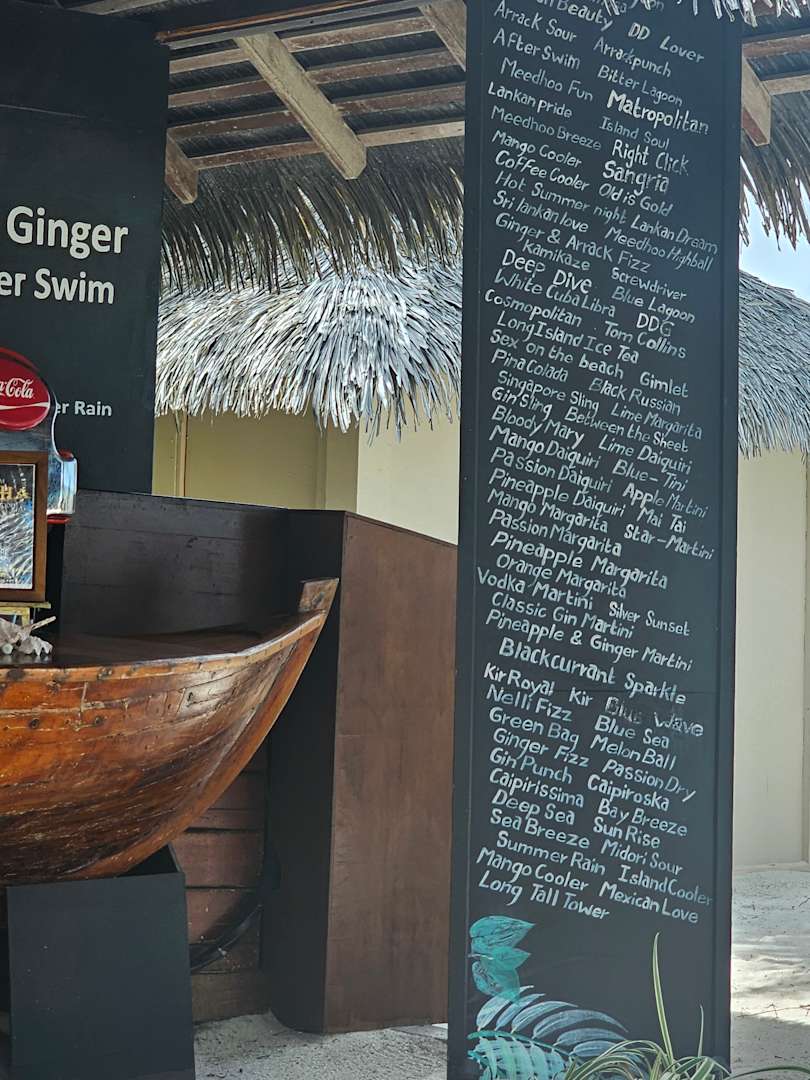 Ginger
er Swim
Coca-Cola
er Rain
Beauty DD Lover
Arrack Sour Arrackpunch
After Swim Bitter Lagoon
Meedhoo Fun Matropolitan
Lankan pride Island Soul
Meedhoo Breeze Right Click
Mango Cooler Sangria
Coffee Cooler Old is Gold
Hot Summer night Lankan Dream
Sri lankan love Meedhoo Highball
Ginger & Arrack Fizz
Kamikaze Screwdriver
Deep Dive Blue Lagoon
White Cuba Libra DDG
Cosmopolitan Tom Collins
Long Island Ice Tea
Sex on the beach Gimlet
Pina Colada Black Russian
Singapore Sling Lime Margarita
Gin Sling Between the Sheet
Bloody Mary Lime Daiquiri
Mango Daiquiri Blue-Tini
Passion Daiquiri Apple Martini
Pineapple Daiquiri Mai Tai
Mango Margarita Star-Martini
Passion Margarita
Pineapple Margarita
Orange Margarita
Vodka Martini Silver Sunset
Classic Gin Martini
Pineapple & Ginger Martini
Blackcurrant Sparkle
Kir Royal Kir Blue Wave
Nelli Fizz Blue Sea
Green Bag Melon Ball
Ginger Fizz Passion Dry
Gin Punch Caipiroska
Caipirissima Bay Breeze
Deep Sea Sun Rise
Sea Breeze Midori Sour
Summer Rain Island Cooler
Mango Cooler Mexican Love
Long Tall Tower